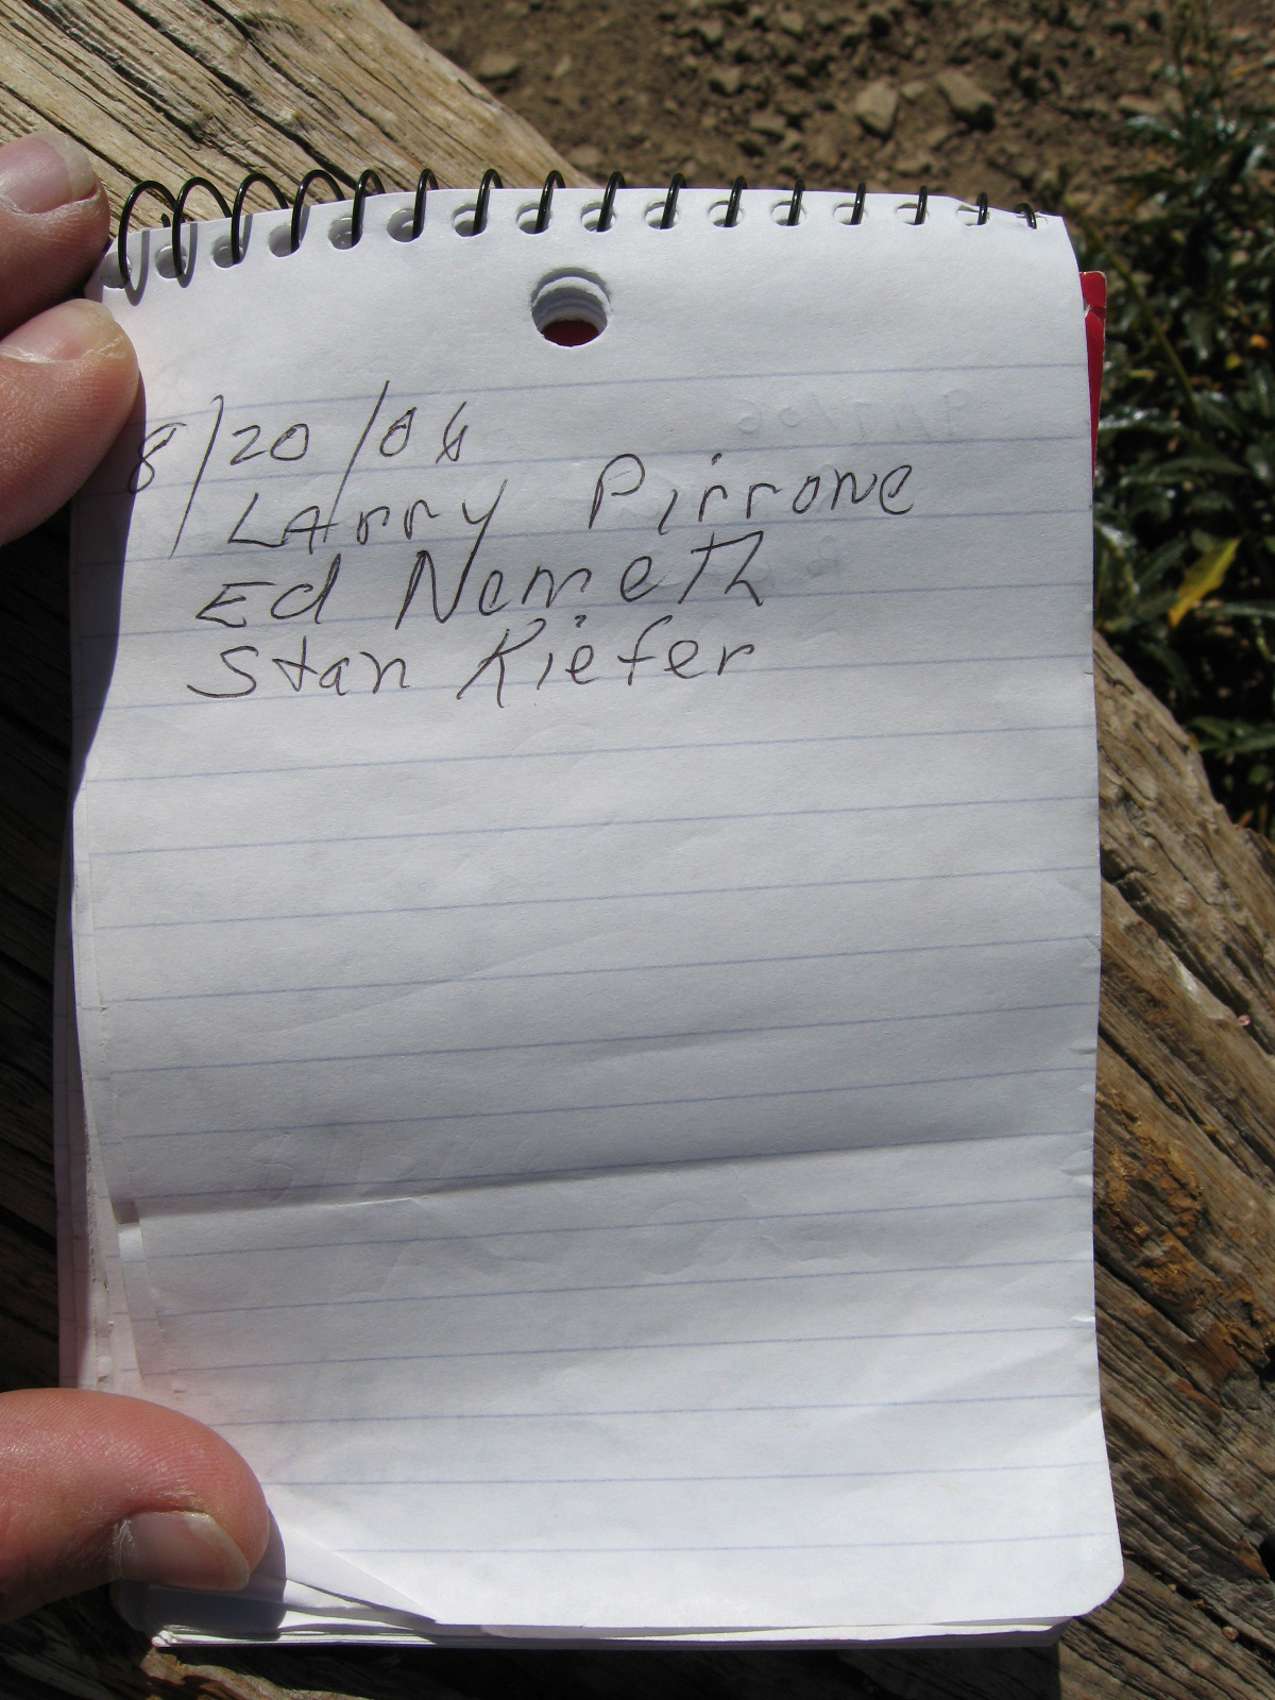 8/20/06
Larry Pirrone
Ed Nemeth
Stan Kiefer